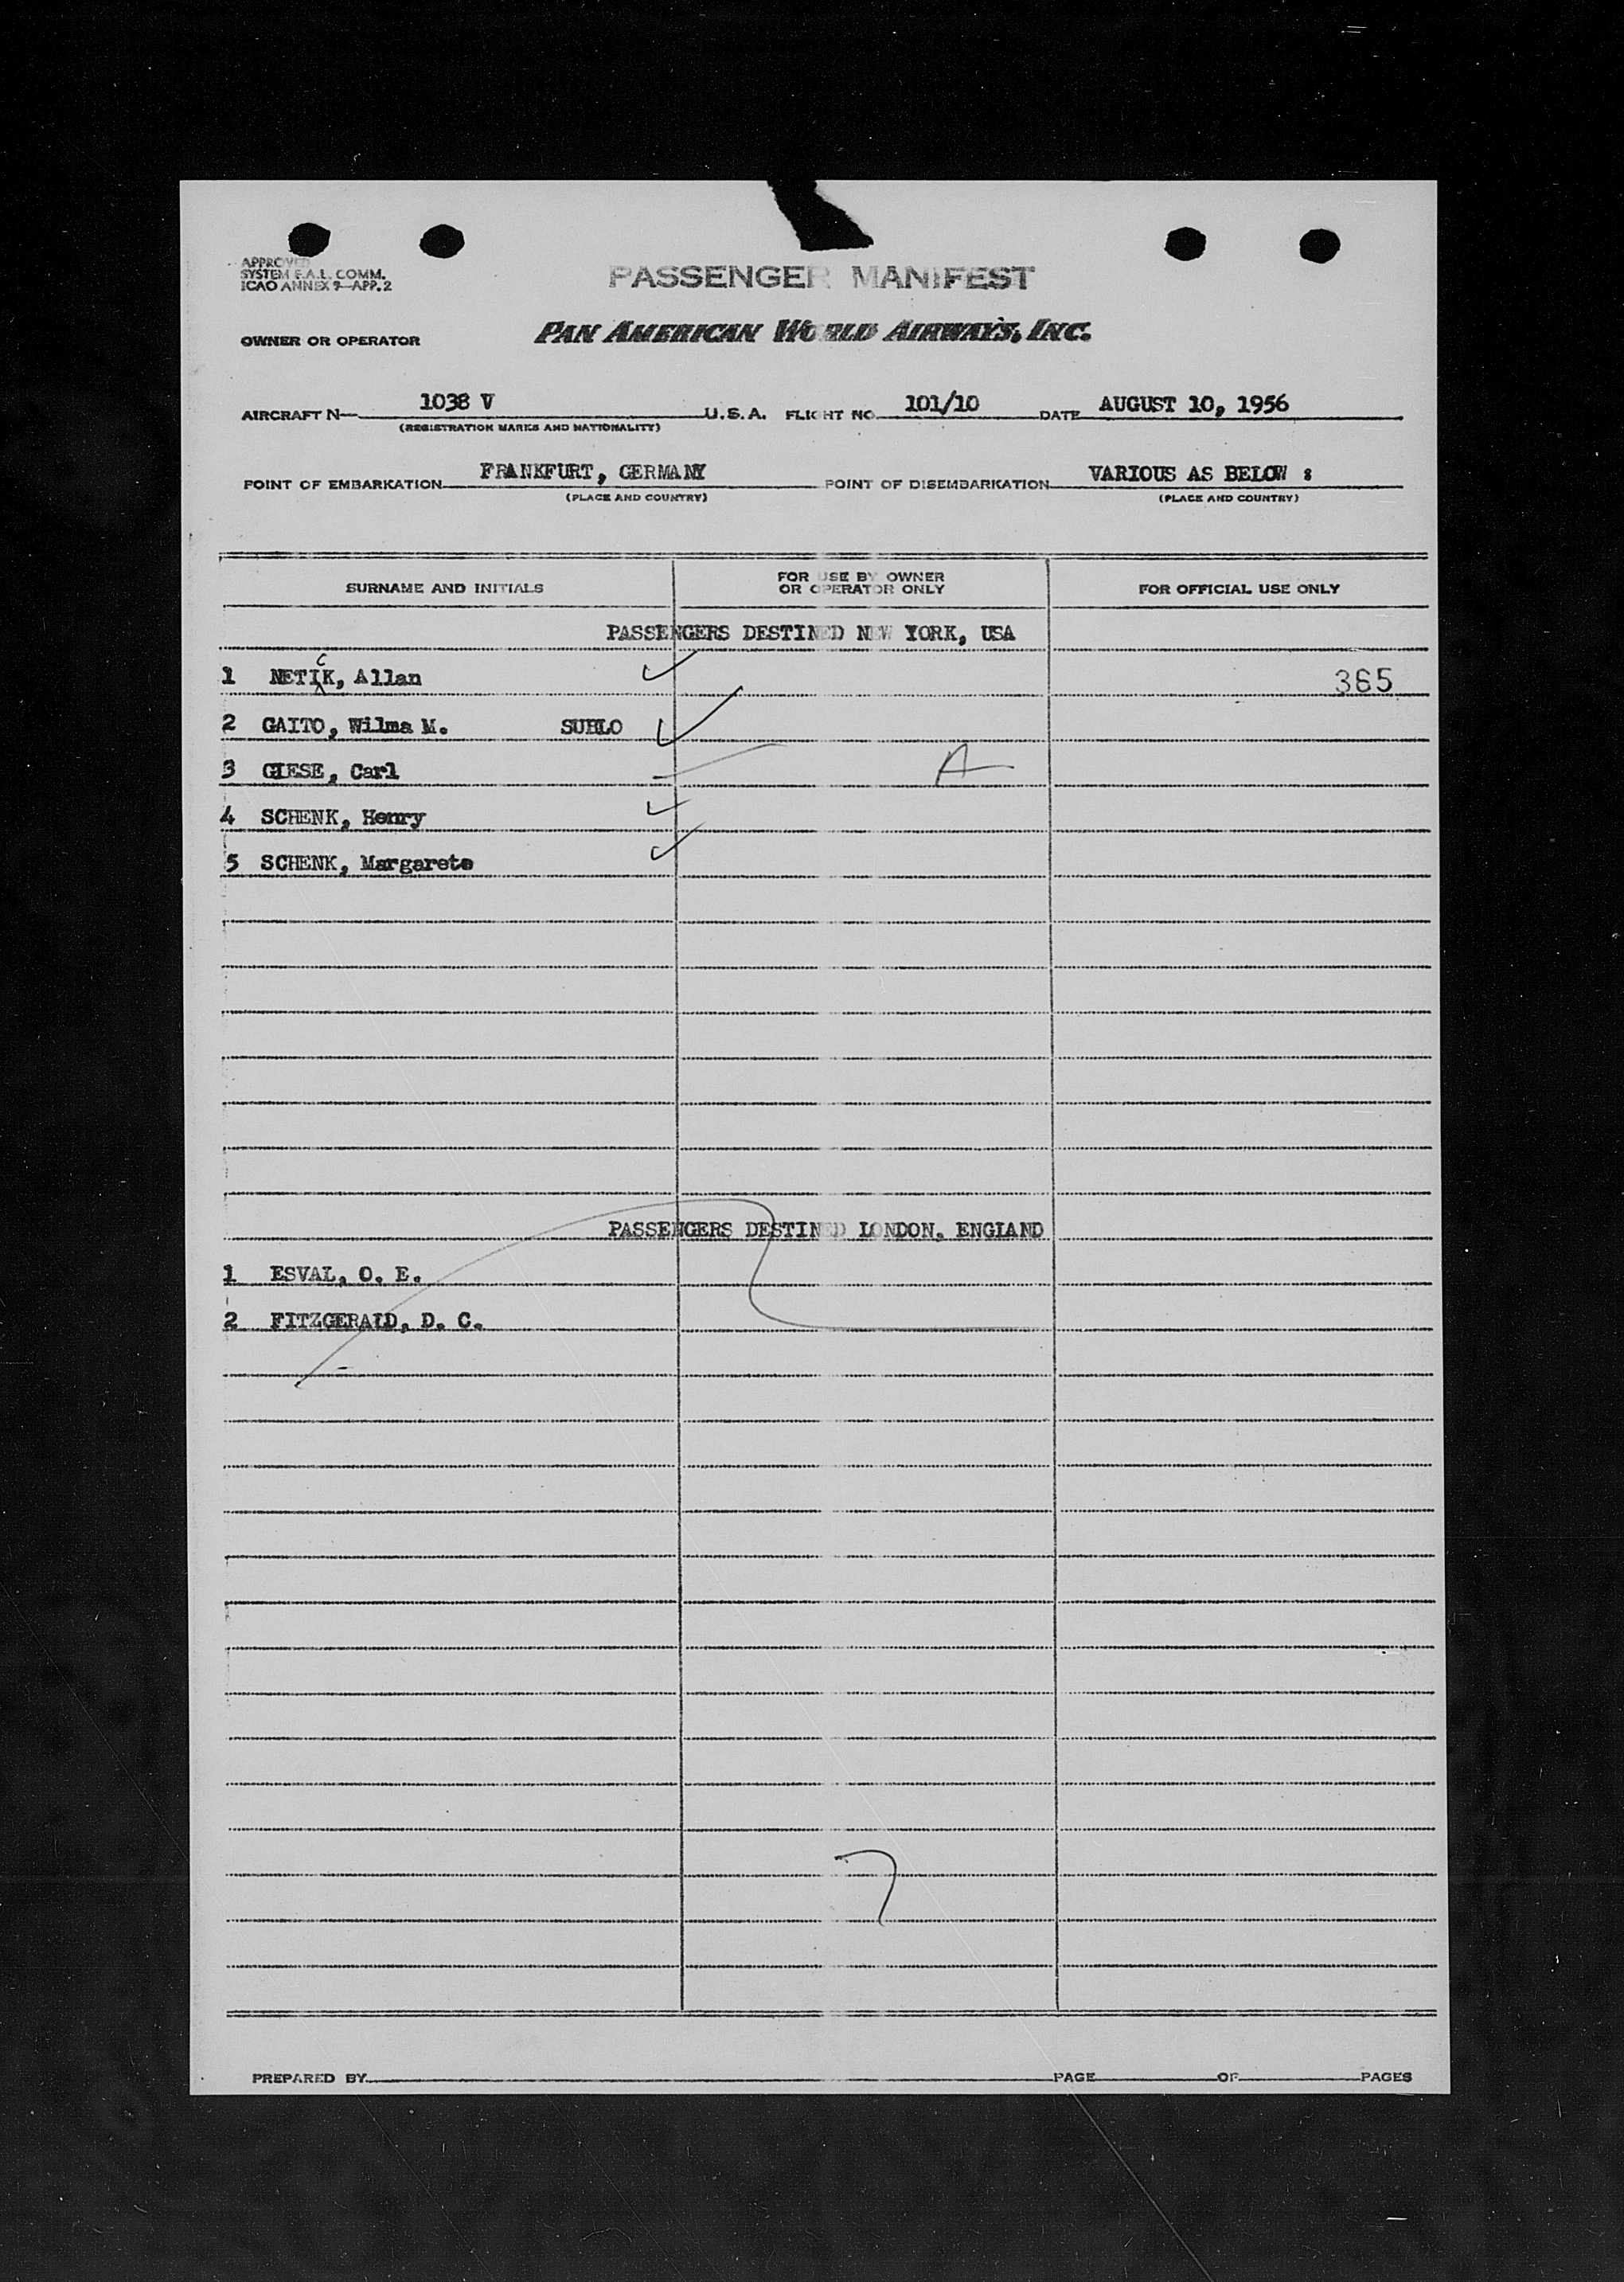 APPROVED
SYSTEM F.A.L. COMM.
ICAO ANNEX 9-APP. 2
PASSENGER MANIFEST
OWNER OR OPERATOR PAN AMERICAN WORLD AIRWAYS, INC.
AIRCRAFT N— 1038 V U.S.A. FLIGHT NO. 101/10 DATE AUGUST 10, 1956
(REGISTRATION MARKS AND NATIONALITY)
POINT OF EMBARKATION FRANKFURT, GERMANY POINT OF DISEMBARKATION VARIOUS AS BELOW :
(PLACE AND COUNTRY) (PLACE AND COUNTRY)
SURNAME AND INITIALS FOR USE BY OWNER OR OPERATOR ONLY FOR OFFICIAL USE ONLY
PASSENGERS DESTINED NEW YORK, USA
c
1 NETIK, Allan 365
2 GAITO, Wilma M. SUBLO
3 GIESE, Carl A
4 SCHENK, Henry
5 SCHENK, Margarete
PASSENGERS DESTINED LONDON, ENGLAND
1 ESVAL, O. E.
2 FITZGERALD, D. C.
PREPARED BY PAGE OF PAGES